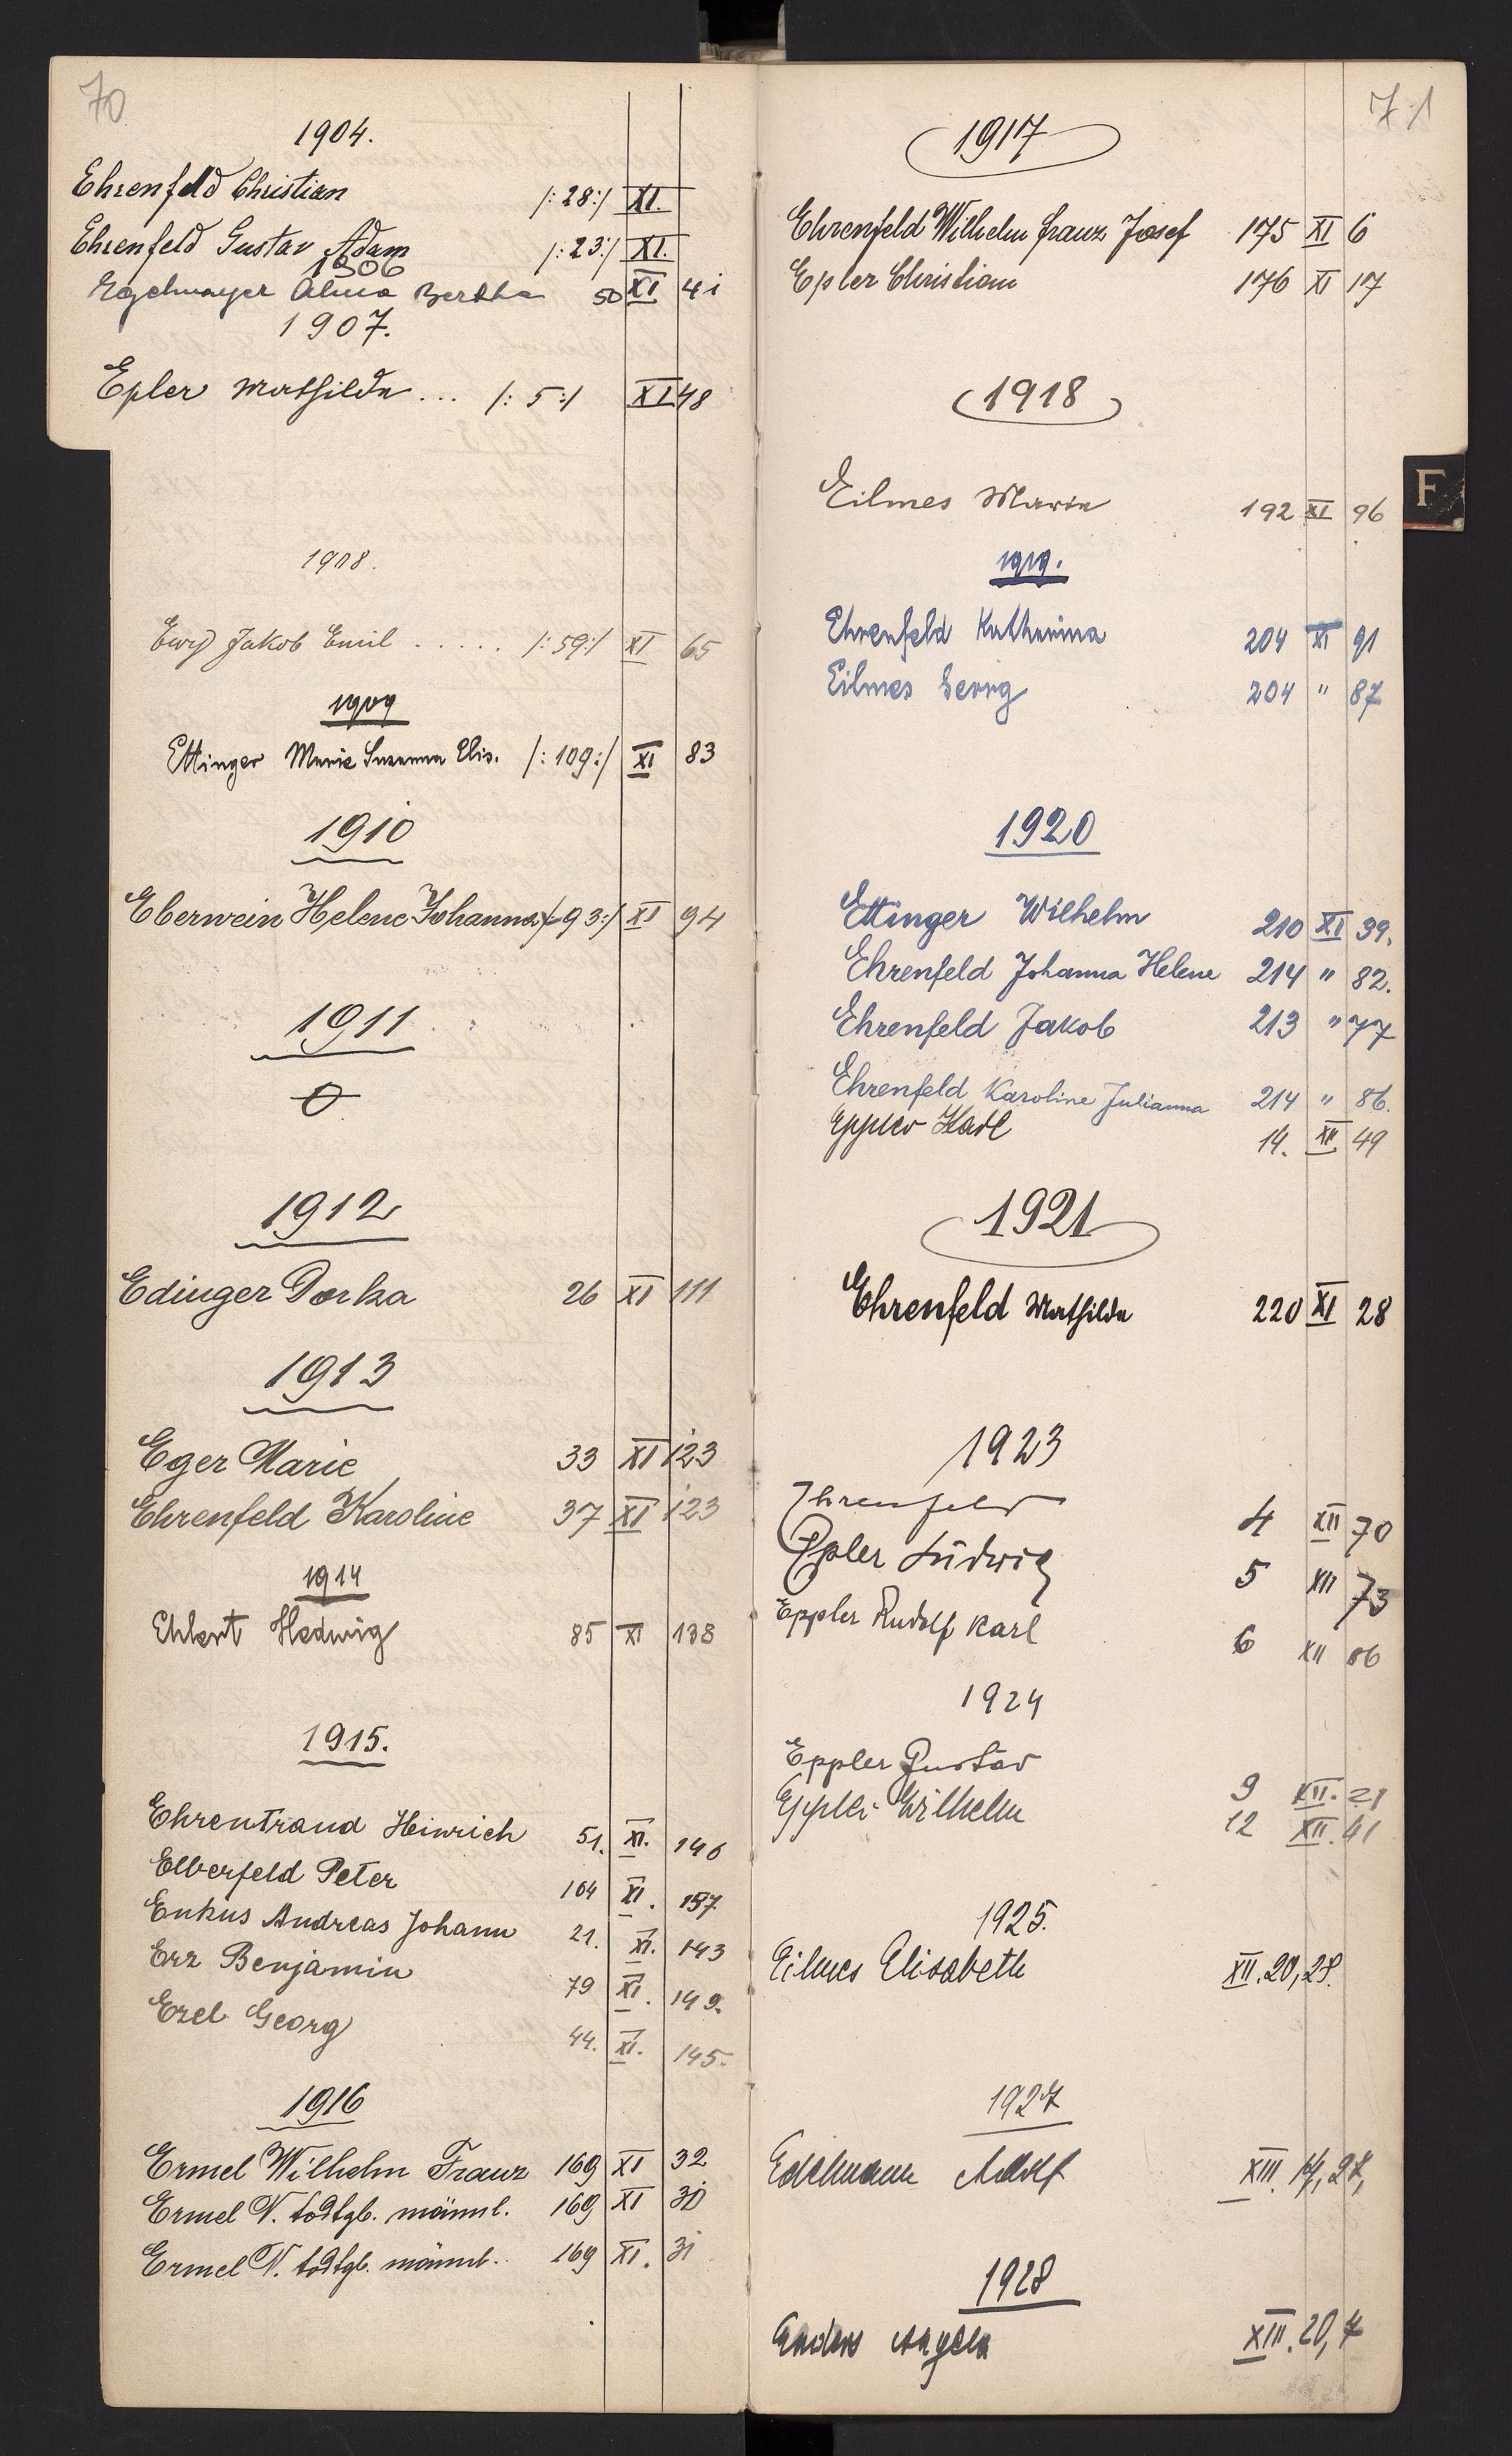 70
1904.
Ehrenfeld Christian /:28:/ XI.
Ehrenfeld Gustav Adam /:23:/ XI.
1906
Egelmayer Alma Bertha 50 XI 41
1907.
Epler Mathilde ... /:5:/ XI 48
1908.
Ewy Jakob Emil ..... /:59:/ XI 65
1909
Ettinger Marie Susanna Elis. /:109:/ XI 83
1910
Eberwein Helene Johanna /:93:/ XI 94
1911
0
1912
Edinger Dorka 26 XI 111
1913
Eger Marie 33 XI 123
Ehrenfeld Karoline 37 XI 123
1914
Ehlert Hedwig 85 XI 138
1915.
Ehrentraud Heinrich 51. XI. 146
Elberfeld Peter 104 XI. 157
Enkus Andreas Johann 21. XI. 143
Erz Benjamin 79 XI. 149.
Ezel Georg 44. XI. 145.
1916
Ermel Wilhelm Franz 169 XI 32
Ermel N. todtgb. männl. 169 XI 30
Ermel N. todtgb. männl. 169 XI. 31
71
1917
Ehrenfeld Wilhelm Franz Josef 175 XI 6
Epler Christian 176 XI 17
1918
Eilmes Maria 192 XI 96
F
1919.
Ehrenfeld Katharina 204 XI 91
Eilmes Georg 204 " 87
1920
Ettinger Wilhelm 210 XI 39.
Ehrenfeld Johanna Helene 214 " 82.
Ehrenfeld Jakob 213 " 77
Ehrenfeld Karoline Julianna 214 " 86.
Eppler Karl 14. XII 49
1921
Ehrenfeld Mathilde 220 XI 28
1923
Ehrenfeld 4 XII 70
Epler Ludwig 5 XII 73
Eppler Rudolf Karl 6 XII 86
1924
Eppler Gustav 9 XII. 21
Eppler Wilhelm 12 XII. 41
1925.
Eilmes Elisabeth XII. 20, 28.
1927
Edelmann Adolf XIII. 14, 27,
1928
Enders Angela XIII. 20, 7